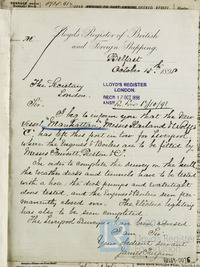 Lloyd's Register of British
and Foreign Shipping,
Belfast
October 15th 1898
The Secretary
London.
LLOYD'S REGISTER
LONDON.
RECD 17 OCT 1898
ANSD
Sir,
I beg to inform you that the new
vessel "Manhattan", Messrs Harland & Wolff's
has left this port in tow for Liverpool
where the Engines & Boilers are to be fitted by
Messrs
In order to complete the survey on the hull
the weather decks and tunnels have to be tested
with a hose, the deck pumps and watertight
doors tested, and the Engine & Boiler
closed over. The Electric lighting
has also to be seen completed.
The Liverpool Surveyors have been advised
I am Sir
Your obedient servant
James